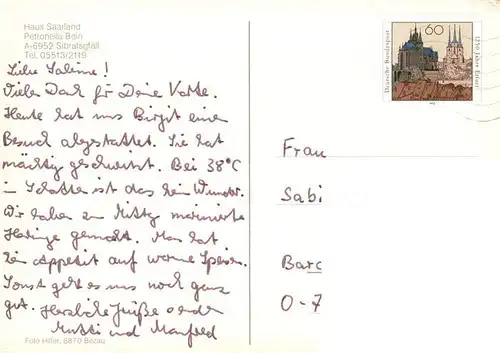 Haus Saarland
Petronella Bein
A-6952 Sibratsgfäll
Tel. 05513/2119
Liebe Sabine!
Vielen Dank für Deine Karte.
Heute hat uns Birgit einen
Besuch abgestattet. Sie hat
mächtig geschwitzt. Bei 38°C
im Schatten ist das kein Wunder.
Wir haben zu Mittag marinierte
Heringe gemacht. Man hat
kein Appetit auf warme Speisen.
Sonst geht es uns noch ganz
gut. Herzliche Grüße senden
Mutti und Manfred
Foto Hiller, 6870 Bezau
60
Deutsche Bundespost
1250 Jahre Erfurt
Frau
Sabi
Barc
O-7